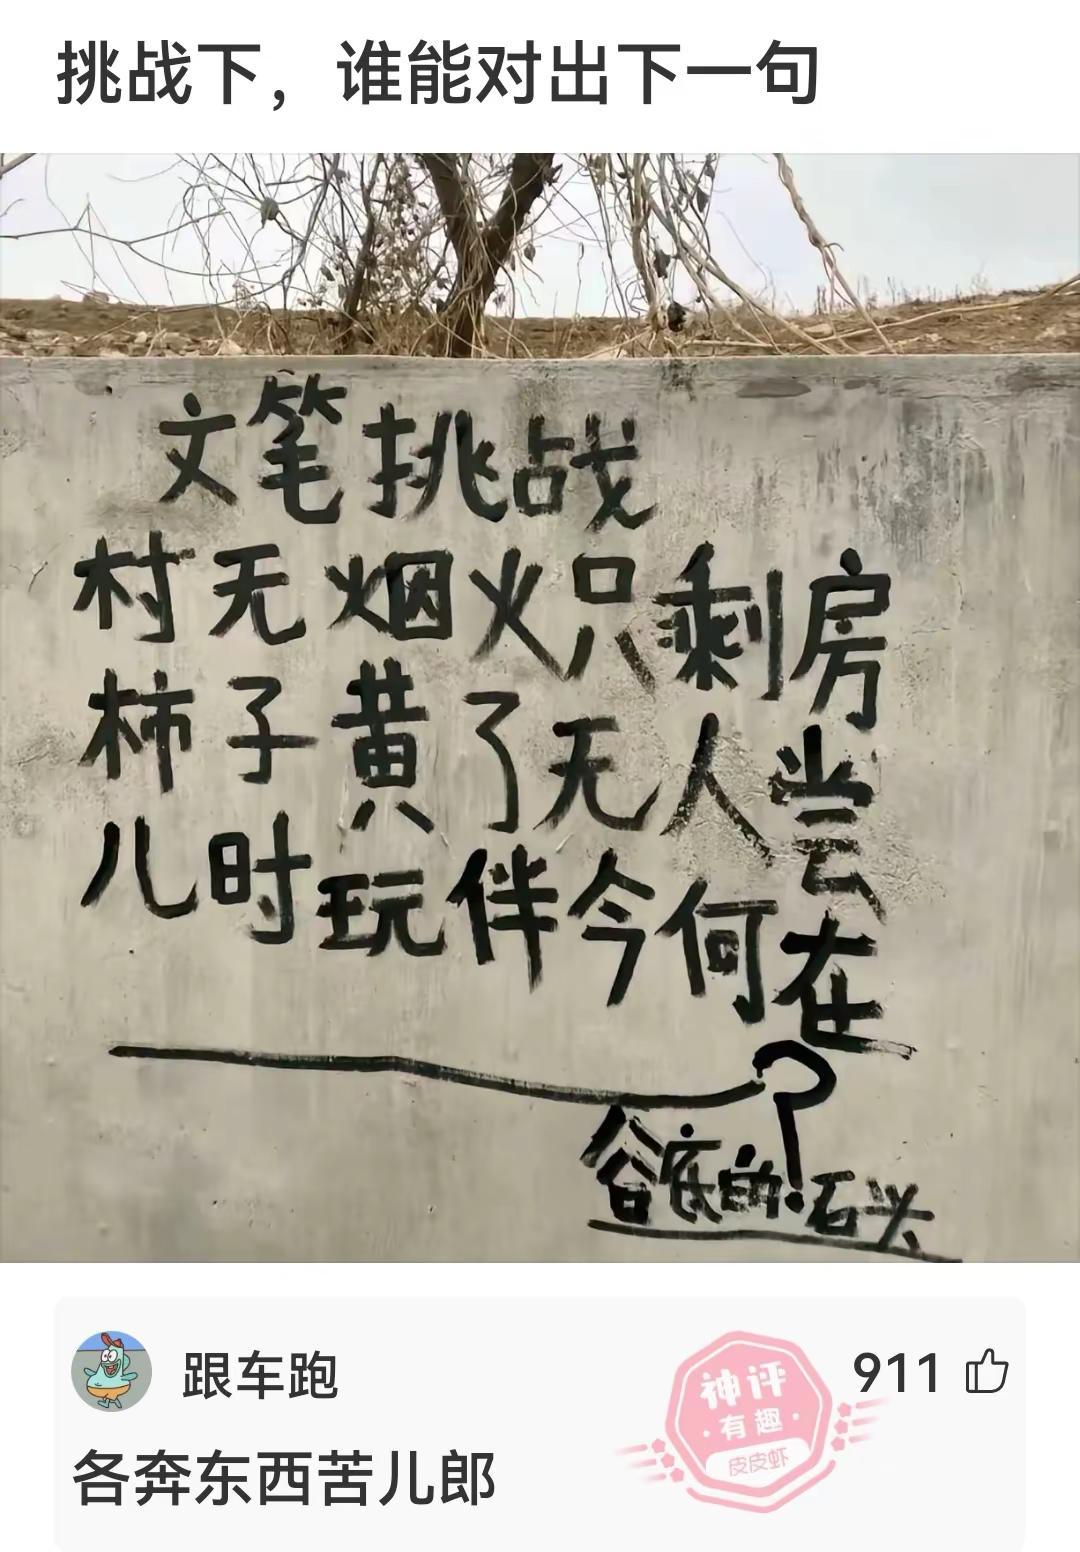 挑战下，谁能对出下一句
文笔挑战
村无烟火只剩房
柿子黄了无人尝
儿时玩伴今何在
？
谷底的石头
跟车跑
神评
·有趣·
皮皮虾
911
各奔东西苦儿郎